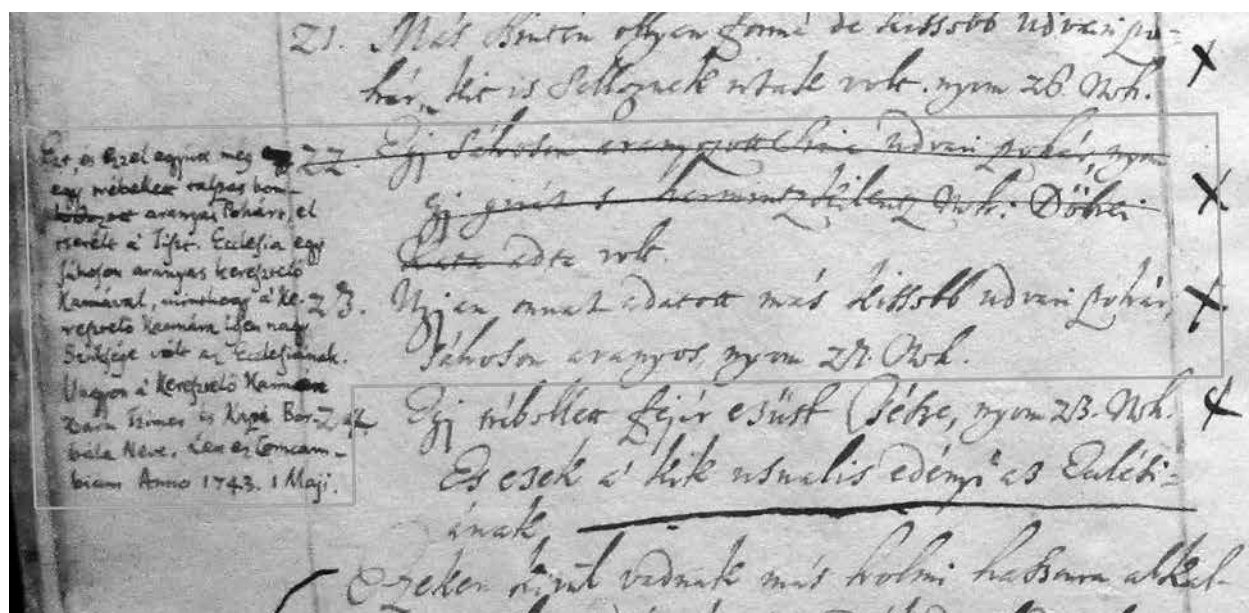 21. Más Hinsén ollyan formá de kissebb udvari po=
hár, kit is Selleznek irtak volt. nyom 26 Noh.
22. Egj Sáhoson aranyozott Sima Udvari pohár, nyom
egj girát s harmintzkilentz Noh: Döbrei
Kata adta volt.
23. Ugjan onnat adatott más kissebb udvari pohár,
Sáhoson aranyos, nyom 27. Noh.
24. Egj trébellett fejér esüst Csésze, nyom 23. Noh.
Es esek á kik usualis edényi as Eclési=
ának
Eseken kivül vadnak más holmi hassonra alkal-
Ezt, és Ezzel együtt meg egy
egy trébellett talpas bom-
aranyas Pohárt, el
tserélt á Tiszt. Ecclesia egy
Sáhoson aranyas keresztelő
Kannával, minthogy á ke-
resztelő Kannára igen nagy
Szüksége volt az Ecclesiának.
Vagyon á Keresztelő Kannán
Szimer és Kapa Bor-
bála Neve. Anno 1743. 1 Maji.